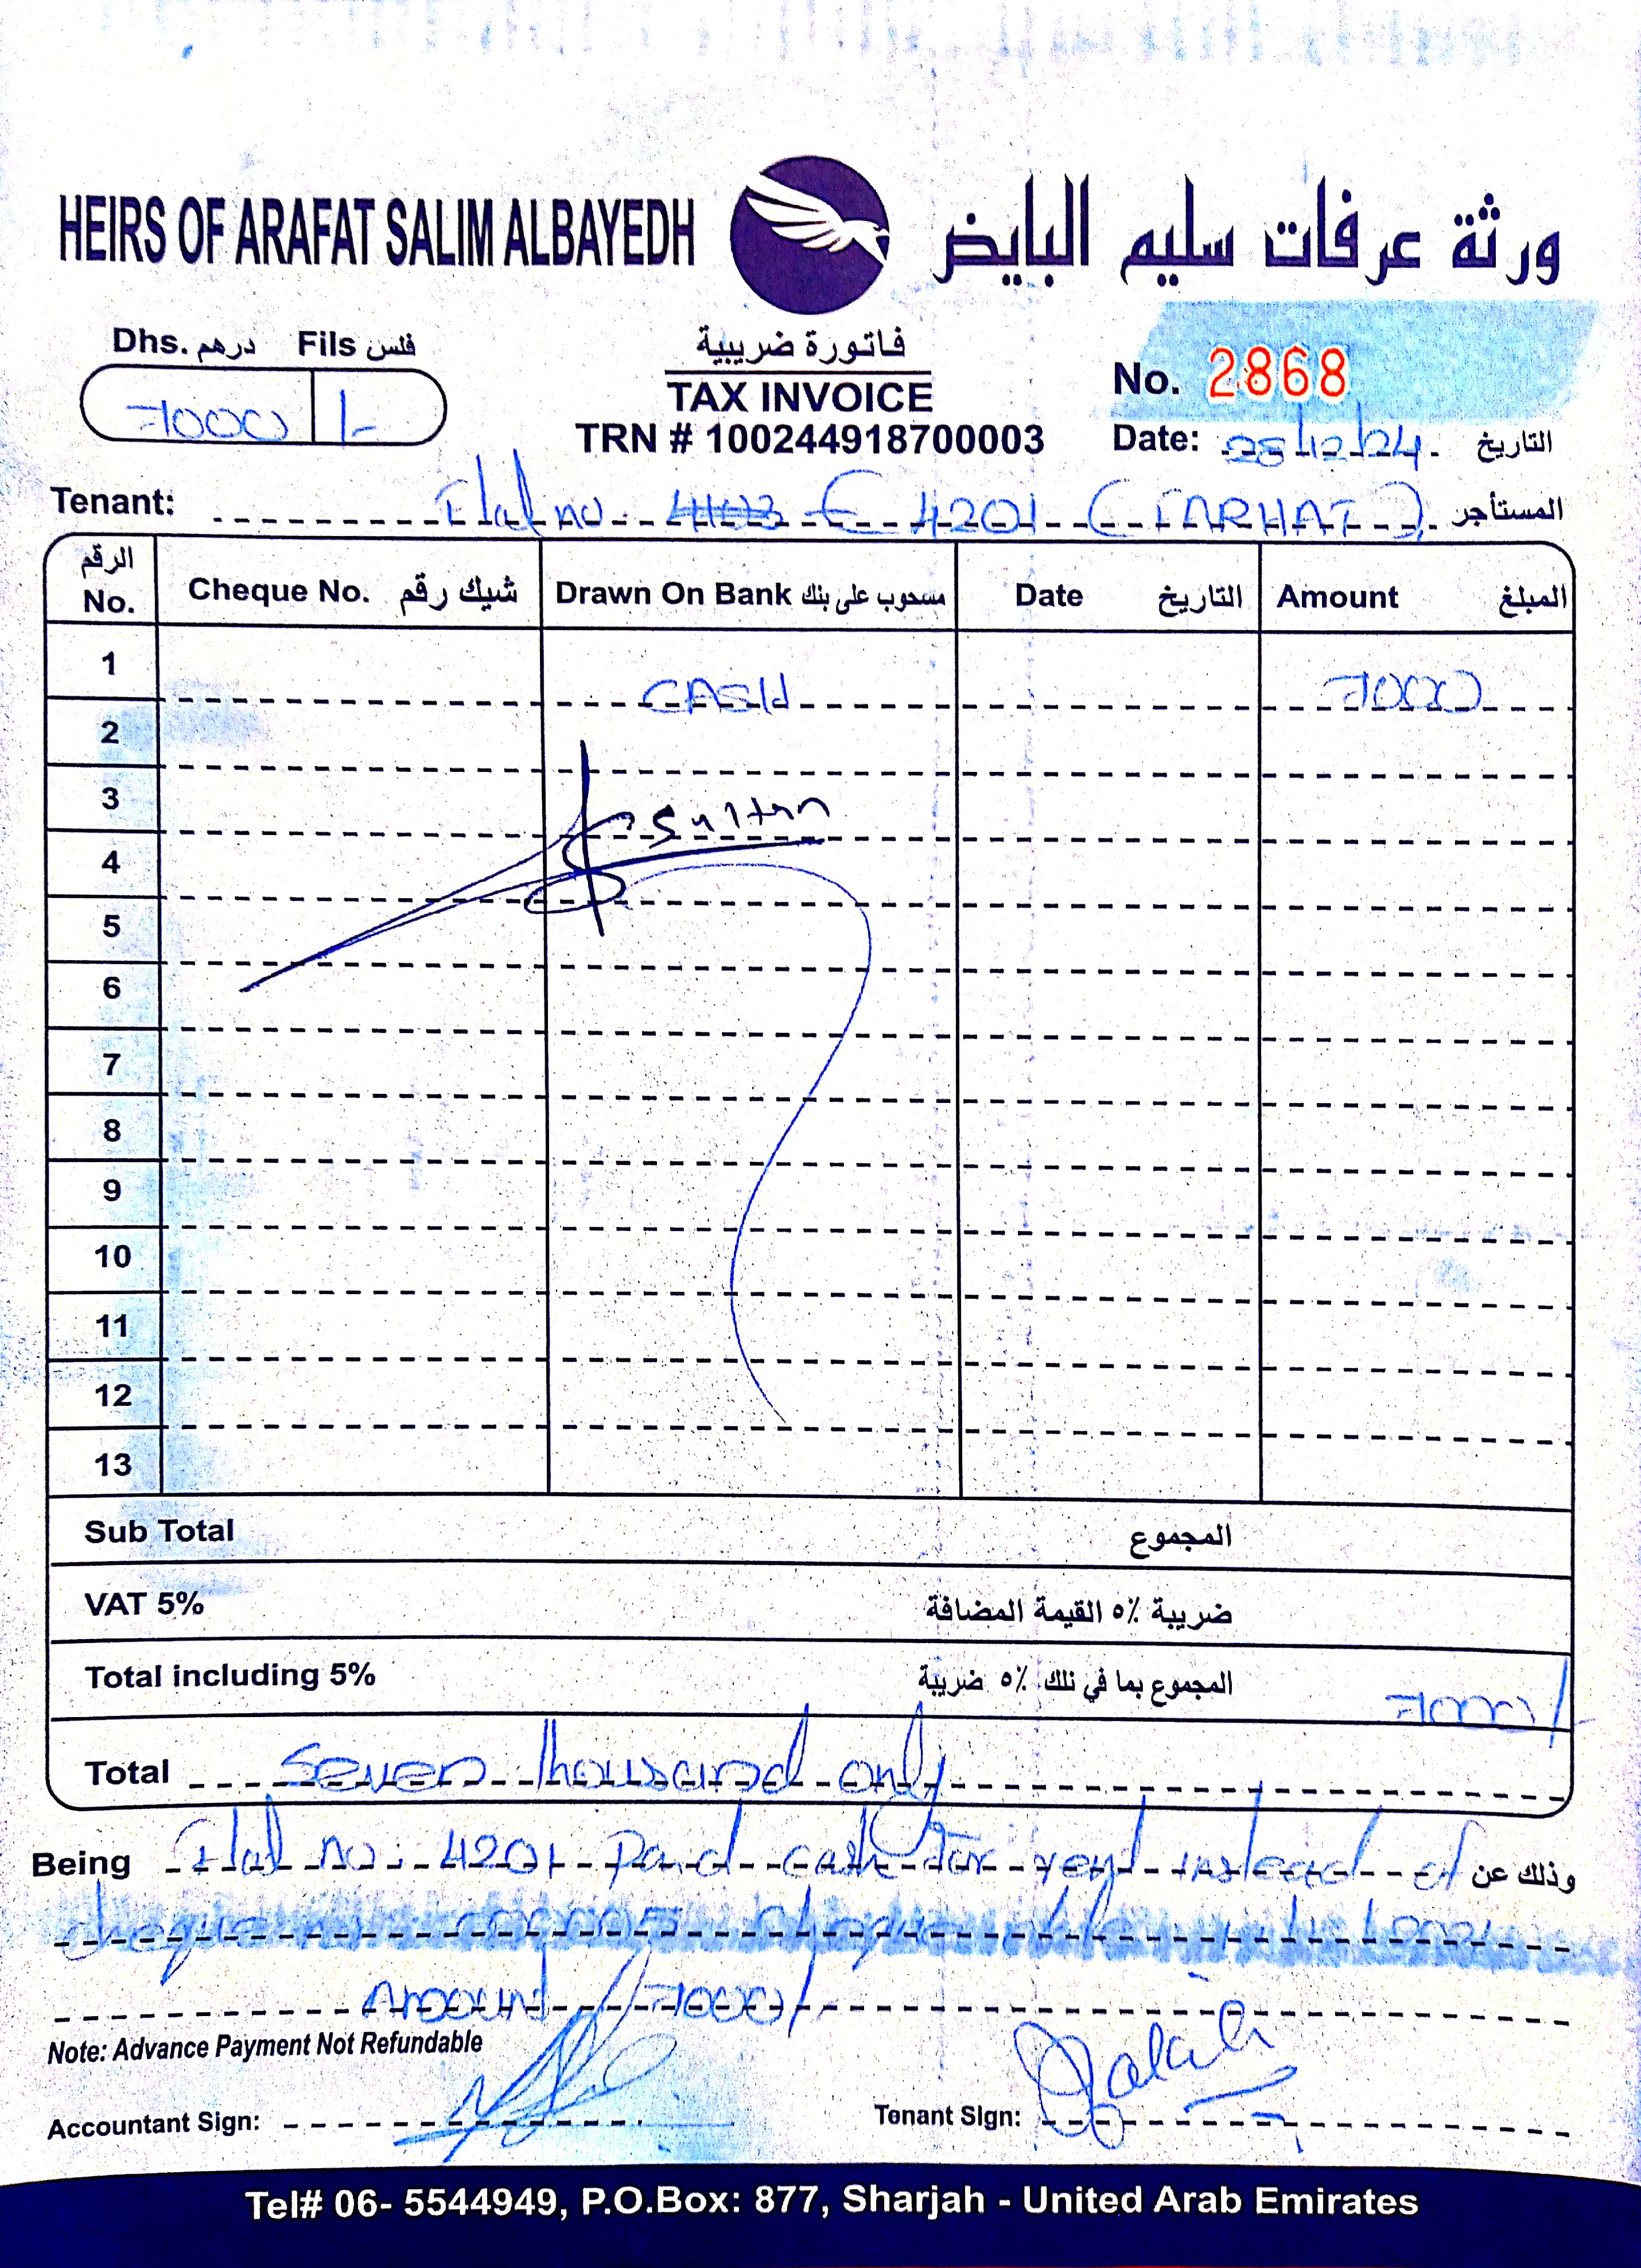 HEIRS OF ARAFAT SALIM ALBAYEDH ورثة عرفات سليم البايض
Dhs. درهم Fils فلس
7000 /-
فاتورة ضريبية
TAX INVOICE
TRN # 100244918700003
No. 2868
Date: 25/12/24 التاريخ
Tenant: Flat no. 4201 (FARHAT) المستأجر
الرقم No. Cheque No. شيك رقم Drawn On Bank مسحوب على بنك Date التاريخ Amount المبلغ
1 CASH 7000
2
3 Sultan
4
5
6
7
8
9
10
11
12
13
Sub Total المجموع
VAT 5% ضريبة ٥٪ القيمة المضافة
Total including 5% المجموع بما في ذلك ٥٪ ضريبة 7000/-
Total Seven thousand only
Being Flat no: 4201 Paid cash for rent instead of وذلك عن
cheque no 000005 cheque
Amount 7000/
Note: Advance Payment Not Refundable
Accountant Sign:
Tenant Sign:
Tel# 06- 5544949, P.O.Box: 877, Sharjah - United Arab Emirates